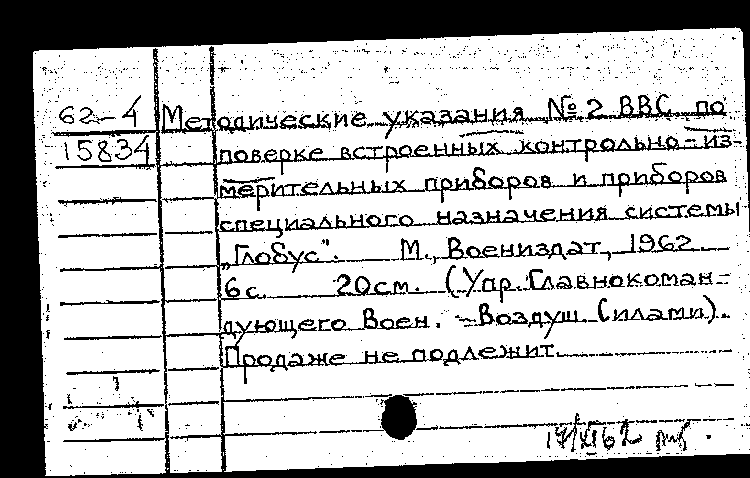 62-4 Методические указания № 2 ВВС по
15834 поверке встроенных контрольно-из-
мерительных приборов и приборов
специального назначения системы
„Глобус". М., Воениздат, 1962.
6с. 20см. (Упр. Главнокоман-
дующего Воен. -Воздуш. Силами).
Продаже не подлежит.
17/XI 62